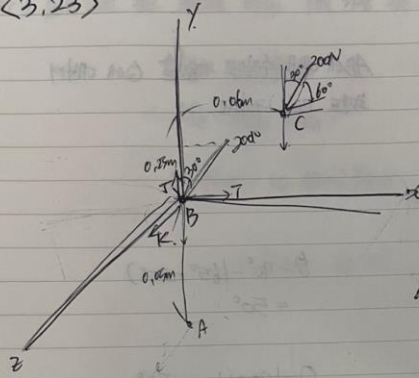 (3,25)
Y
0.06m
30° 200N
60°
C
0.15m
30°
200N
J
B
T
K
0.05m
A
Z